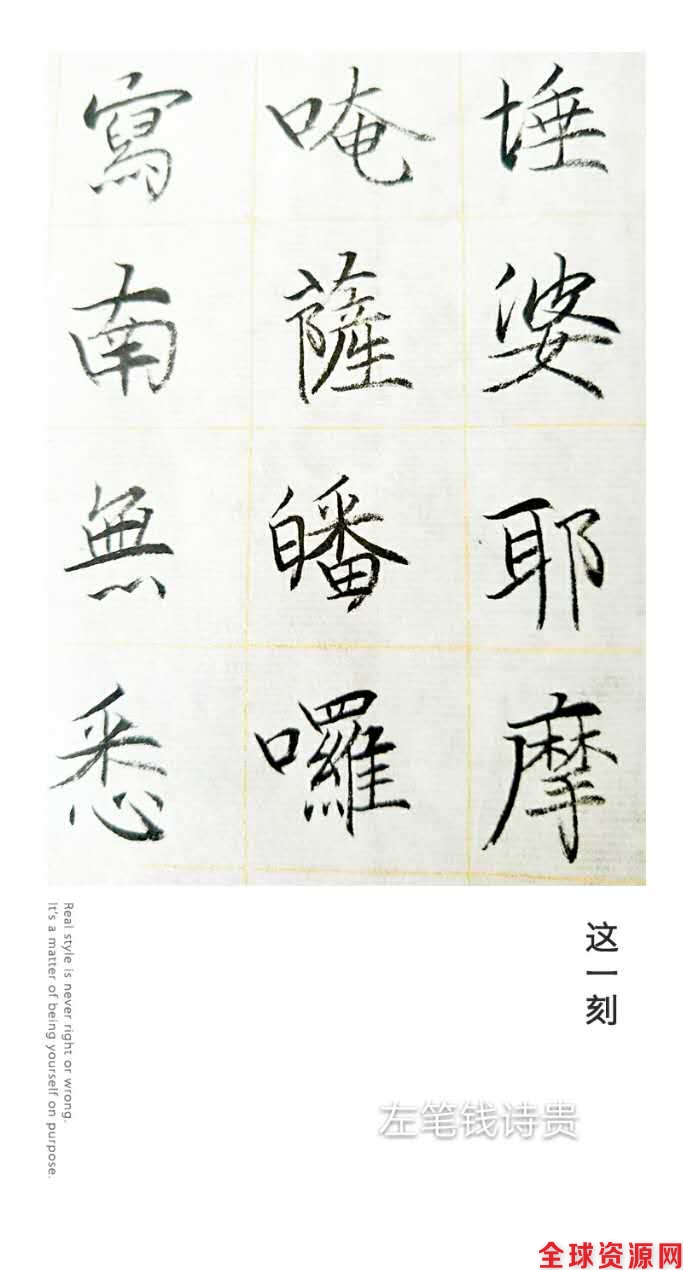 埵婆耶摩
唵薩皤囉
寫南無悉
这一刻
Real style is never right or wrong.
It's a matter of being yourself on purpose.
左笔钱诗贵
全球资源网